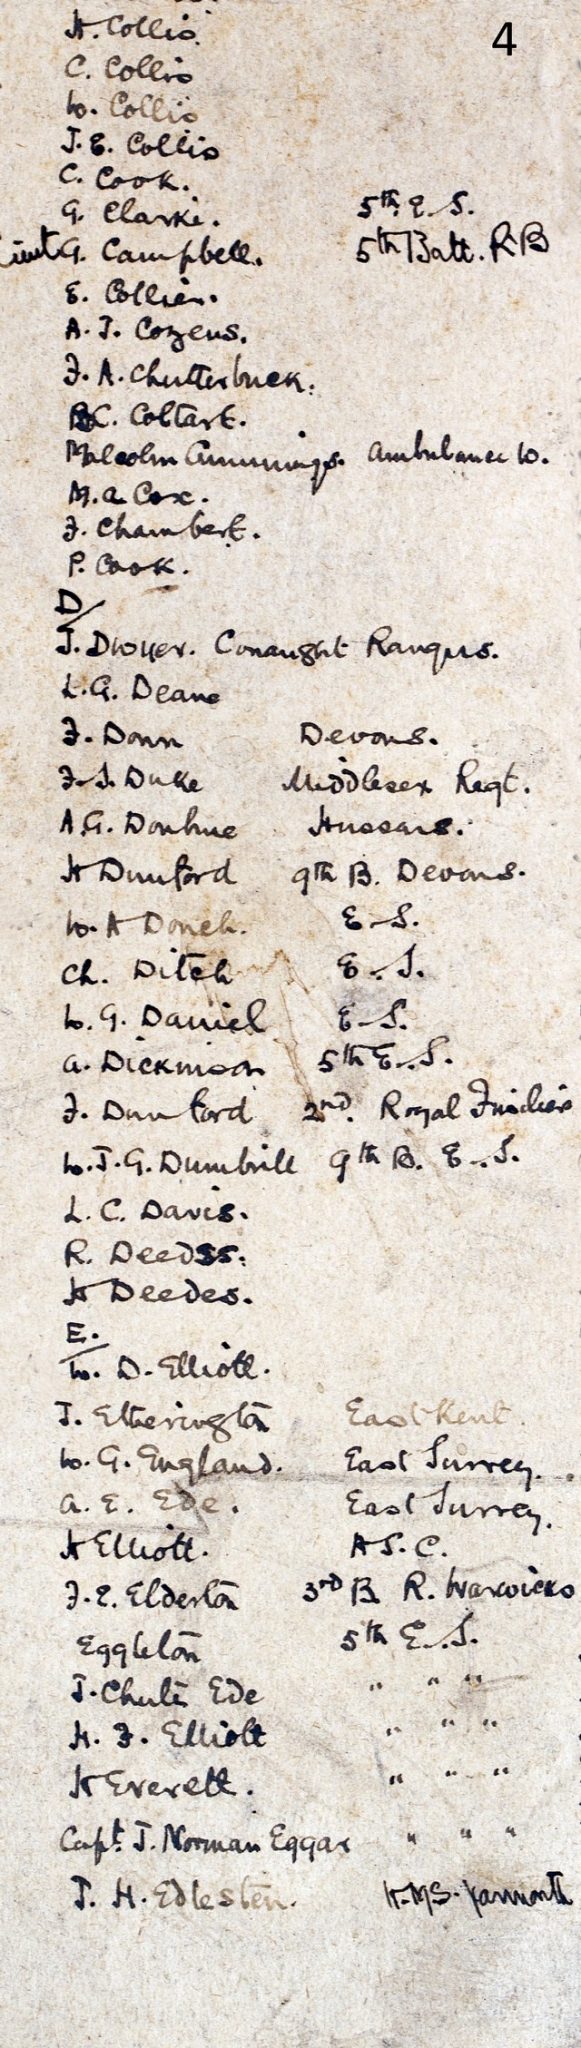 4
H. Collis.
C. Collis
W. Collis
J. E. Collis
C. Cook.
G. Clarke. 5th. E. S.
Lieut G. Campbell. 5th Batt. R B
E. Collier.
A. J. Cozens.
F. A. Chutterbuck.
C. Coltart.
Malcolm Cummings. Ambulance W.
M. A Cox.
F. Chambert.
P. Cook.
D/
J. Dwyer. Conaught Rangers.
L. G. Deane
F. Donn Devons.
F. S. Duke Middlesex Regt.
A. G. Donhue Hussars.
H Dunford 9th B. Devons.
W. A Donch. E. S.
Ch. Ditch E. S.
W. G. Daniel E. S.
A. Dickinson 5th E. S.
F. Dunford 2nd. Royal Fusiliers
W. J. G. Dumbrill 9th B. E. S.
L. C. Davis.
R. Deedss.
H Deedes.
E.
W. D. Elliott.
J. Etherington East Kent.
W. G. England. East Surrey.
A. E. Ede. East Surrey.
H Elliott. A S. C.
F. E. Elderton 3rd B R. Warwicks
Eggleton 5th E. S.
J. Chute Ede " " "
H. F. Elliott " " "
H Everett. " " "
Capt. J. Norman Eggar " " "
J. H. Edlesten. H. M S. Yarmouth